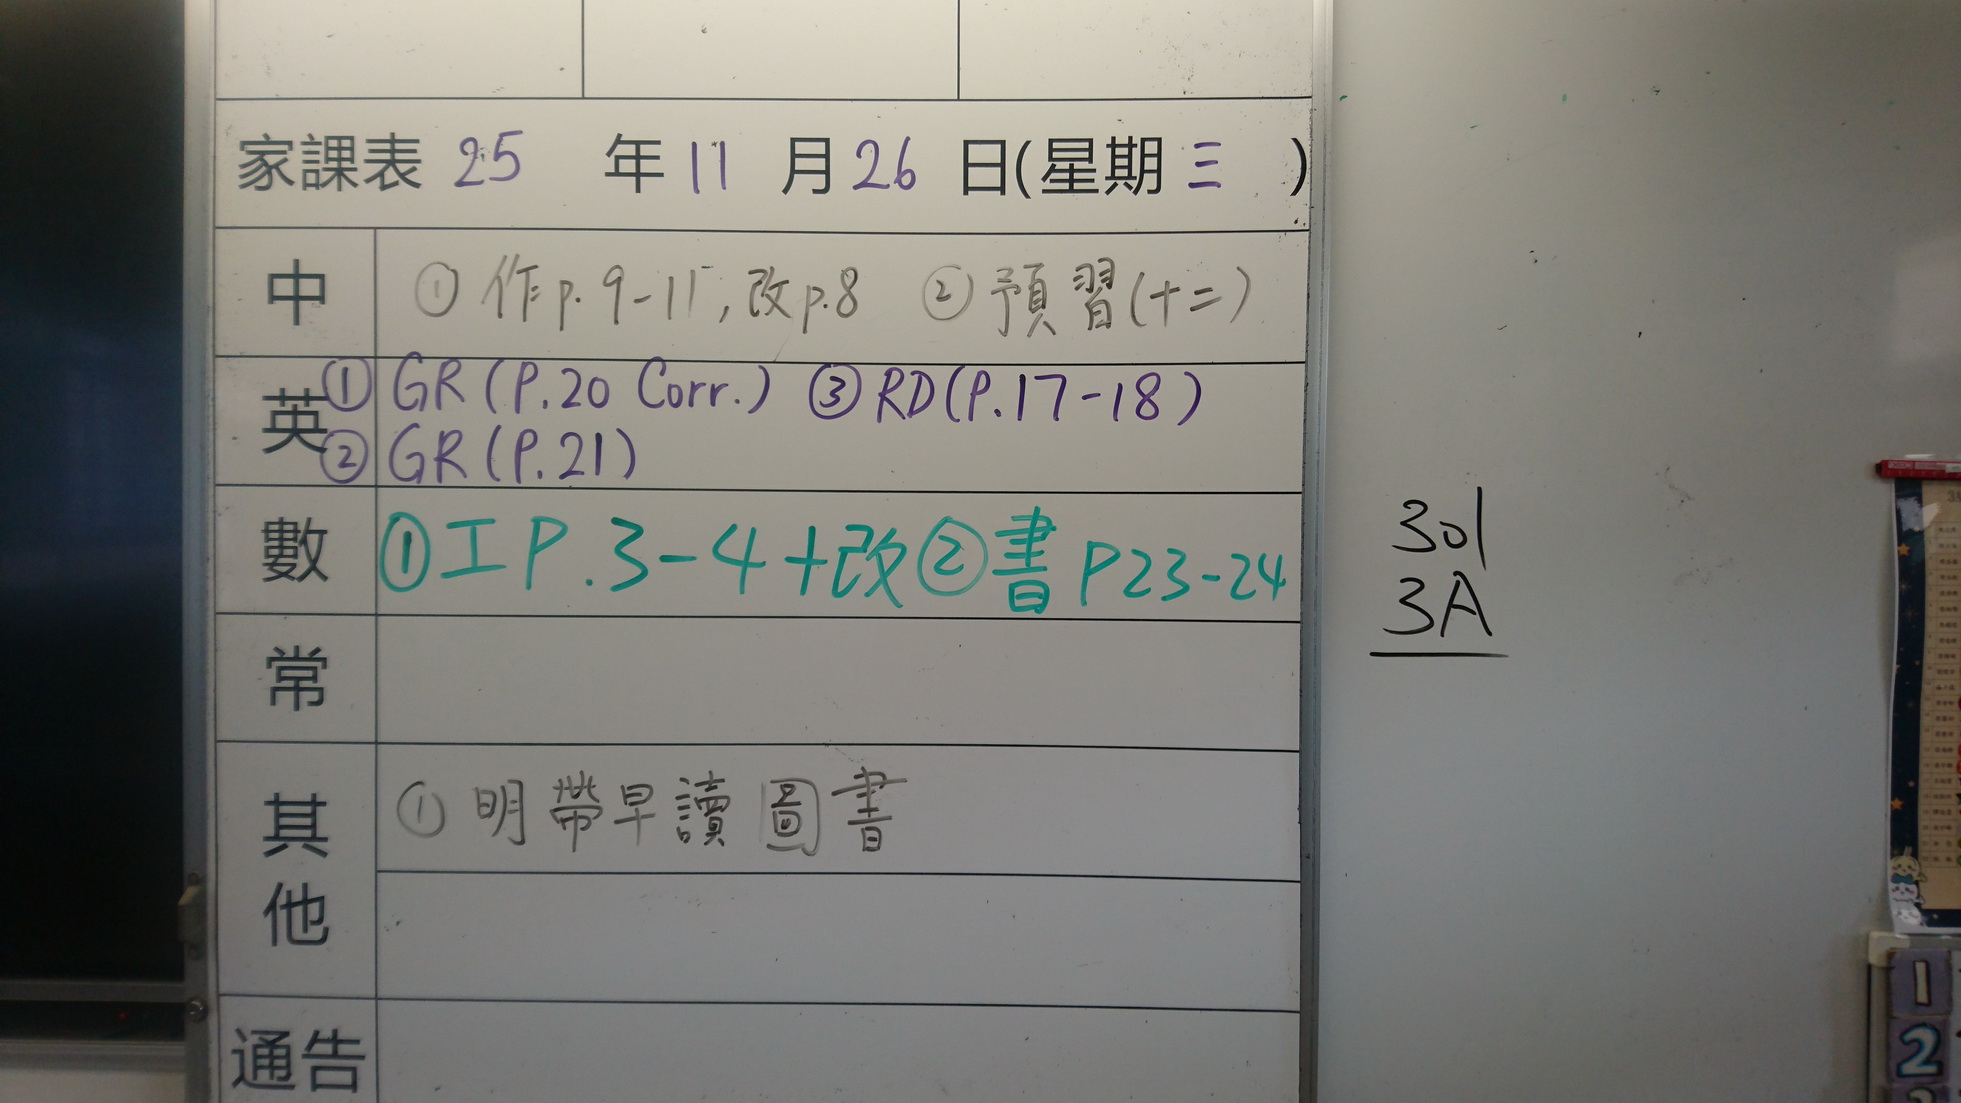 家課表 25 年 11 月 26 日(星期 三 )
中 ① 作p.9-11,改p.8 ② 預習(十二)
英 ① GR (P.20 Corr.) ③ RD (P.17-18)
② GR (P.21)
數 ①工P.3-4+改②書P23-24
常
其他 ① 明帶早讀圖書
通告
301
3A
1
2